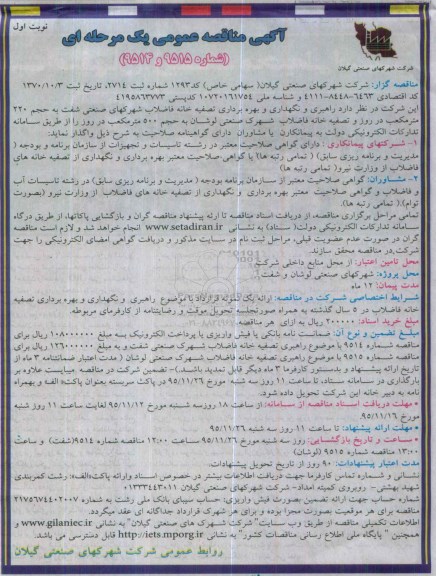 نوبت اول
آگهی مناقصه عمومی یک مرحله ای
(شماره ۹۵۱۵ و ۹۵۱۴)
شرکت شهرکهای صنعتی گیلان
مناقصه گزار: شرکت شهرکهای صنعتی گیلان( سهامی خاص) کد۱۲۹۳ شماره ثبت ۲۷۱۴، تاریخ ثبت ۱۳۷۰/۱۰/۳
کد اقتصادی ۶۴۶۳-۸۴۴۸-۴۱۱۱ و شناسه ملی ۱۰۷۲۰۱۶۱۷۵۴ کدپستی ۴۱۹۵۸۶۳۷۷۳
این شرکت در نظر دارد راهبری و نگهداری و بهره برداری تصفیه خانه فاضلاب شهرکهای صنعتی شفت به حجم ۲۲۰
مترمکعب در روز و تصفیه خانه فاضلاب شهرک صنعتی لوشان به حجم ۵۰۰ مترمکعب در روز را از طریق سامانه
تدارکات الکترونیکی دولت به پیمانکاران یا مشاوران دارای گواهینامه صلاحیت به شرح ذیل واگذار نماید:
۱- شرکتهای پیمانکاری : دارای گواهی صلاحیت معتبر در رشته تاسیسات و تجهیزات از سازمان برنامه و بودجه (
مدیریت و برنامه ریزی سابق) ( تمامی رتبه ها) یا گواهی صلاحیت معتبر بهره برداری و نگهداری از تصفیه خانه های
فاضلاب از وزارت نیرو( تمامی رتبه ها)
۲- مشاوران: گواهی صلاحیت معتبر از سازمان برنامه بودجه ( مدیریت و برنامه ریزی سابق) در رشته تاسیسات آب
و فاضلاب و گواهی صلاحیت معتبر بهره برداری و نگهداری از تصفیه خانه های فاضلاب از وزارت نیرو (بصورت
توام).( تمامی رتبه ها).
تمامی مراحل برگزاری مناقصه، از دریافت اسناد مناقصه تا ارائه پیشنهاد مناقصه گران و بازگشایی پاکاتها، از طریق درگاه
سامانه تدارکات الکترونیکی دولت( ستاد) به نشانی www.setadiran.ir انجام خواهد شد و لازم است مناقصه
گران در صورت عدم عضویت قبلی، مراحل ثبت نام در سایت مذکور و دریافت گواهی امضای الکترونیکی را جهت
شرکت در مناقصه محقق سازند.
محل تامین اعتبار: از محل منابع داخلی شرکت
محل پروژه: شهرکهای صنعتی لوشان و شفت
مدت پیمان: ۱۲ ماه
شرایط اختصاصی شرکت در مناقصه: ارائه یک نمونه قرارداد با موضوع راهبری و نگهداری و بهره برداری تصفیه
خانه فاضلاب در ۵ سال گذشته به همراه صورتجلسه تحویل موقت و رضایتنامه از کارفرمای مربوطه.
مبلغ خرید اسناد: ۲۰۰۰۰۰ ریال به ازای هر مناقصه
مبلغ تضمین و نوع آن: ضمانت نامه بانکی یا فیش واریزی یا پرداخت الکترونیک بیت مبلغ ۱۰۸۰۰۰۰۰۰ ریال برای
مناقصه شماره ۹۵۱۴ با موضوع راهبری تصفیه خانه فاضلاب شهرک صنعتی شفت و به مبلغ ۱۲۶۰۰۰۰۰۰ ریال برای
مناقصه شماره ۹۵۱۵ با موضوع راهبری تصفیه خانه فاضلاب شهرک صنعتی لوشان ( مدت اعتبار ضمانتنامه ۳ ماه از
تاریخ ارائه پیشنهاد و بدستور کارفرما ۳ ماه دیگر قابل تمدید باشد.)- تضمین شرکت در مناقصه میبایست علاوه بر
بارگذاری در سامانه ستاد، تا ساعت ۱۱ روز سه شنبه مورخ ۹۵/۱۱/۲۶ در پاکت سربسته بعنوان پاکت« الف و بهمراه
نامه به دبیر خانه این شرکت تحویل داده شود.
• مهلت دریافت اسناد مناقصه از سامانه: از ساعت ۱۸ روز سه شنبه مورخ ۹۵/۱۱/۱۲ لغایت ساعت ۱۱ روز شنبه
مورخ ۹۵/۱۱/۱۶
• مهلت ارائه پیشنهاد: تا ساعت ۱۱ روز سه شنبه مورخ ۹۵/۱۱/۲۶
• ساعت و تاریخ بازگشایی: روز سه شنبه مورخ ۹۵/۱۱/۲۶ ساعت ۱۲:۰۰ مناقصه شماره ۹۵۱۴(شفت) و ساعت
۱۳:۰۰ مناقصه شماره ۹۵۱۵ (لوشان)
مدت اعتبار پیشنهادات: ۹۰ روز از تاریخ تحویل پیشنهادات.
نشانی و شماره تماس کارفرما جهت دریافت اطلاعات بیشتر در خصوص اسناد وارائه پاکت«الف»: رشت کمربندی
شهید بهشتی- روبروی کمیته امداد- شرکت شهرکهای صنعتی گیلان
شماره حساب جهت ارائه تضمین بصورت فیش واریزی: حساب سیبای بانک ملی رشت به شماره ۲۱۷۵۶۷۴۴۰۲۰۰۷
مناقصه برای هر موقعیت بصورت مجزا بوده و برای هر شهرک قرارداد جداگانه ای عقد میگردد.
اطلاعات تکمیلی مناقصه از طریق وب سایت" شرکت شهرک های صنعتی گیلان" به نشانی www.gilaniec.ir و
همچنین " پایگاه ملی اطلاع رسانی مناقصات کشور" به نشانی http://iets.mporg.ir قابل دسترسی می باشد.
روابط عمومی شرکت شهرکهای صنعتی گیلان